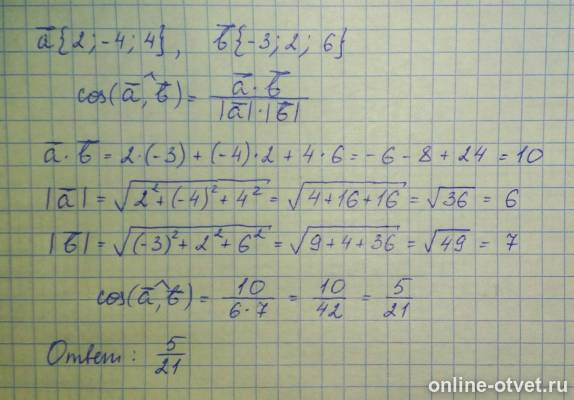 a̅{2; -4; 4}, b̅{-3; 2; 6}
cos(a̅,^b̅) = a̅·b̅ / |a̅|·|b̅|
a̅·b̅ = 2·(-3) + (-4)·2 + 4·6 = -6 - 8 + 24 = 10
|a̅| = √(2² + (-4)² + 4²) = √(4+16+16) = √36 = 6
|b̅| = √((-3)² + 2² + 6²) = √(9+4+36) = √49 = 7
cos(a̅,^b̅) = 10/6·7 = 10/42 = 5/21
Ответ: 5/21
online-otvet.ru